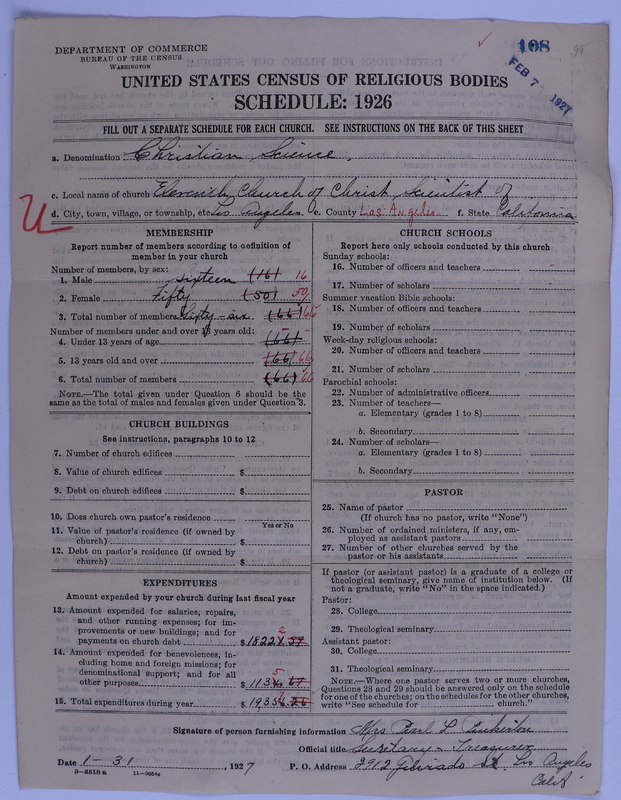 198
FEB 7 1927
DEPARTMENT OF COMMERCE
BUREAU OF THE CENSUS
WASHINGTON
UNITED STATES CENSUS OF RELIGIOUS BODIES
SCHEDULE: 1926
FILL OUT A SEPARATE SCHEDULE FOR EACH CHURCH. SEE INSTRUCTIONS ON THE BACK OF THIS SHEET
a. Denomination Christian Science,
c. Local name of church Eleventh Church of Christ, Scientist of
d. City, town, village, or township, etc. Los Angeles. e. County Los Angeles f. State California
MEMBERSHIP
Report number of members according to definition of
member in your church
Number of members, by sex:
1. Male sixteen (16) 16
2. Female Fifty (50) 50
3. Total number of members Sixty-six (66) 66
Number of members under and over 13 years old:
4. Under 13 years of age (66) -
5. 13 years old and over (66) 66
6. Total number of members (66) 66
NOTE.—The total given under Question 6 should be the
same as the total of males and females given under Question 3.
CHURCH BUILDINGS
See instructions, paragraphs 10 to 12
7. Number of church edifices
8. Value of church edifices $
9. Debt on church edifices $
10. Does church own pastor's residence
Yes or No
11. Value of pastor's residence (if owned by
church) $
12. Debt on pastor's residence (if owned by
church) $
EXPENDITURES
Amount expended by your church during last fiscal year
13. Amount expended for salaries, repairs,
and other running expenses; for im-
provements or new buildings; and for
payments on church debt $ 1822
14. Amount expended for benevolences, in-
cluding home and foreign missions; for
denominational support; and for all
other purposes $ 113
15. Total expenditures during year $ 1935
CHURCH SCHOOLS
Report here only schools conducted by this church
Sunday schools:
16. Number of officers and teachers -
17. Number of scholars -
Summer vacation Bible schools:
18. Number of officers and teachers
19. Number of scholars
Week-day religious schools:
20. Number of officers and teachers
21. Number of scholars
Parochial schools:
22. Number of administrative officers
23. Number of teachers—
a. Elementary (grades 1 to 8)
b. Secondary
24. Number of scholars—
a. Elementary (grades 1 to 8)
b. Secondary
PASTOR
25. Name of pastor
(If church has no pastor, write "None")
26. Number of ordained ministers, if any, em-
ployed as assistant pastors
27. Number of other churches served by the
pastor or his assistants
If pastor (or assistant pastor) is a graduate of a college or
theological seminary, give name of institution below. (If
not a graduate, write "No" in the space indicated.)
Pastor:
28. College
29. Theological seminary
Assistant pastor:
30. College
31. Theological seminary
NOTE.—Where one pastor serves two or more churches,
Questions 28 and 29 should be answered only on the schedule
for one of the churches; on the schedules for the other churches,
write "See schedule for church."
Signature of person furnishing information Mrs. Pearl L.
Official title Secretary - Treasurer
Date 1-31, 1927 P. O. Address 2912 St. Los Angeles
Calif.
8—5518a 11—9054a